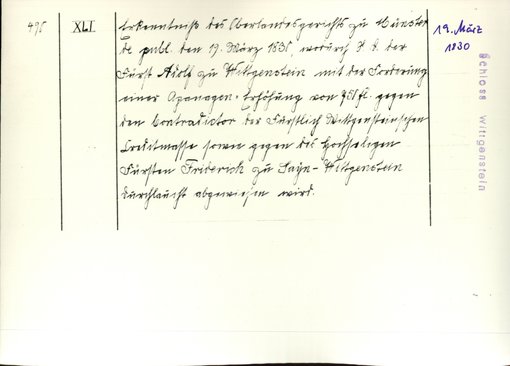 495 XLI Erkenntniß des Oberlandesgerichts zu Münster
de publ. den 19. März 1830, wodurch S. D. der
Fürst Adolf zu Wittgenstein mit der Forderung
einer Apanagen-Erhöhung von fl. gegen
den Contradictor der Fürstlich Wittgenstein'schen
Creditmasse sowie gegen des Hochseligen
Fürsten Friderich zu Sayn-Wittgenstein
Durchlaucht abgewiesen wird.
19. März
1830
Schloss Wittgenstein